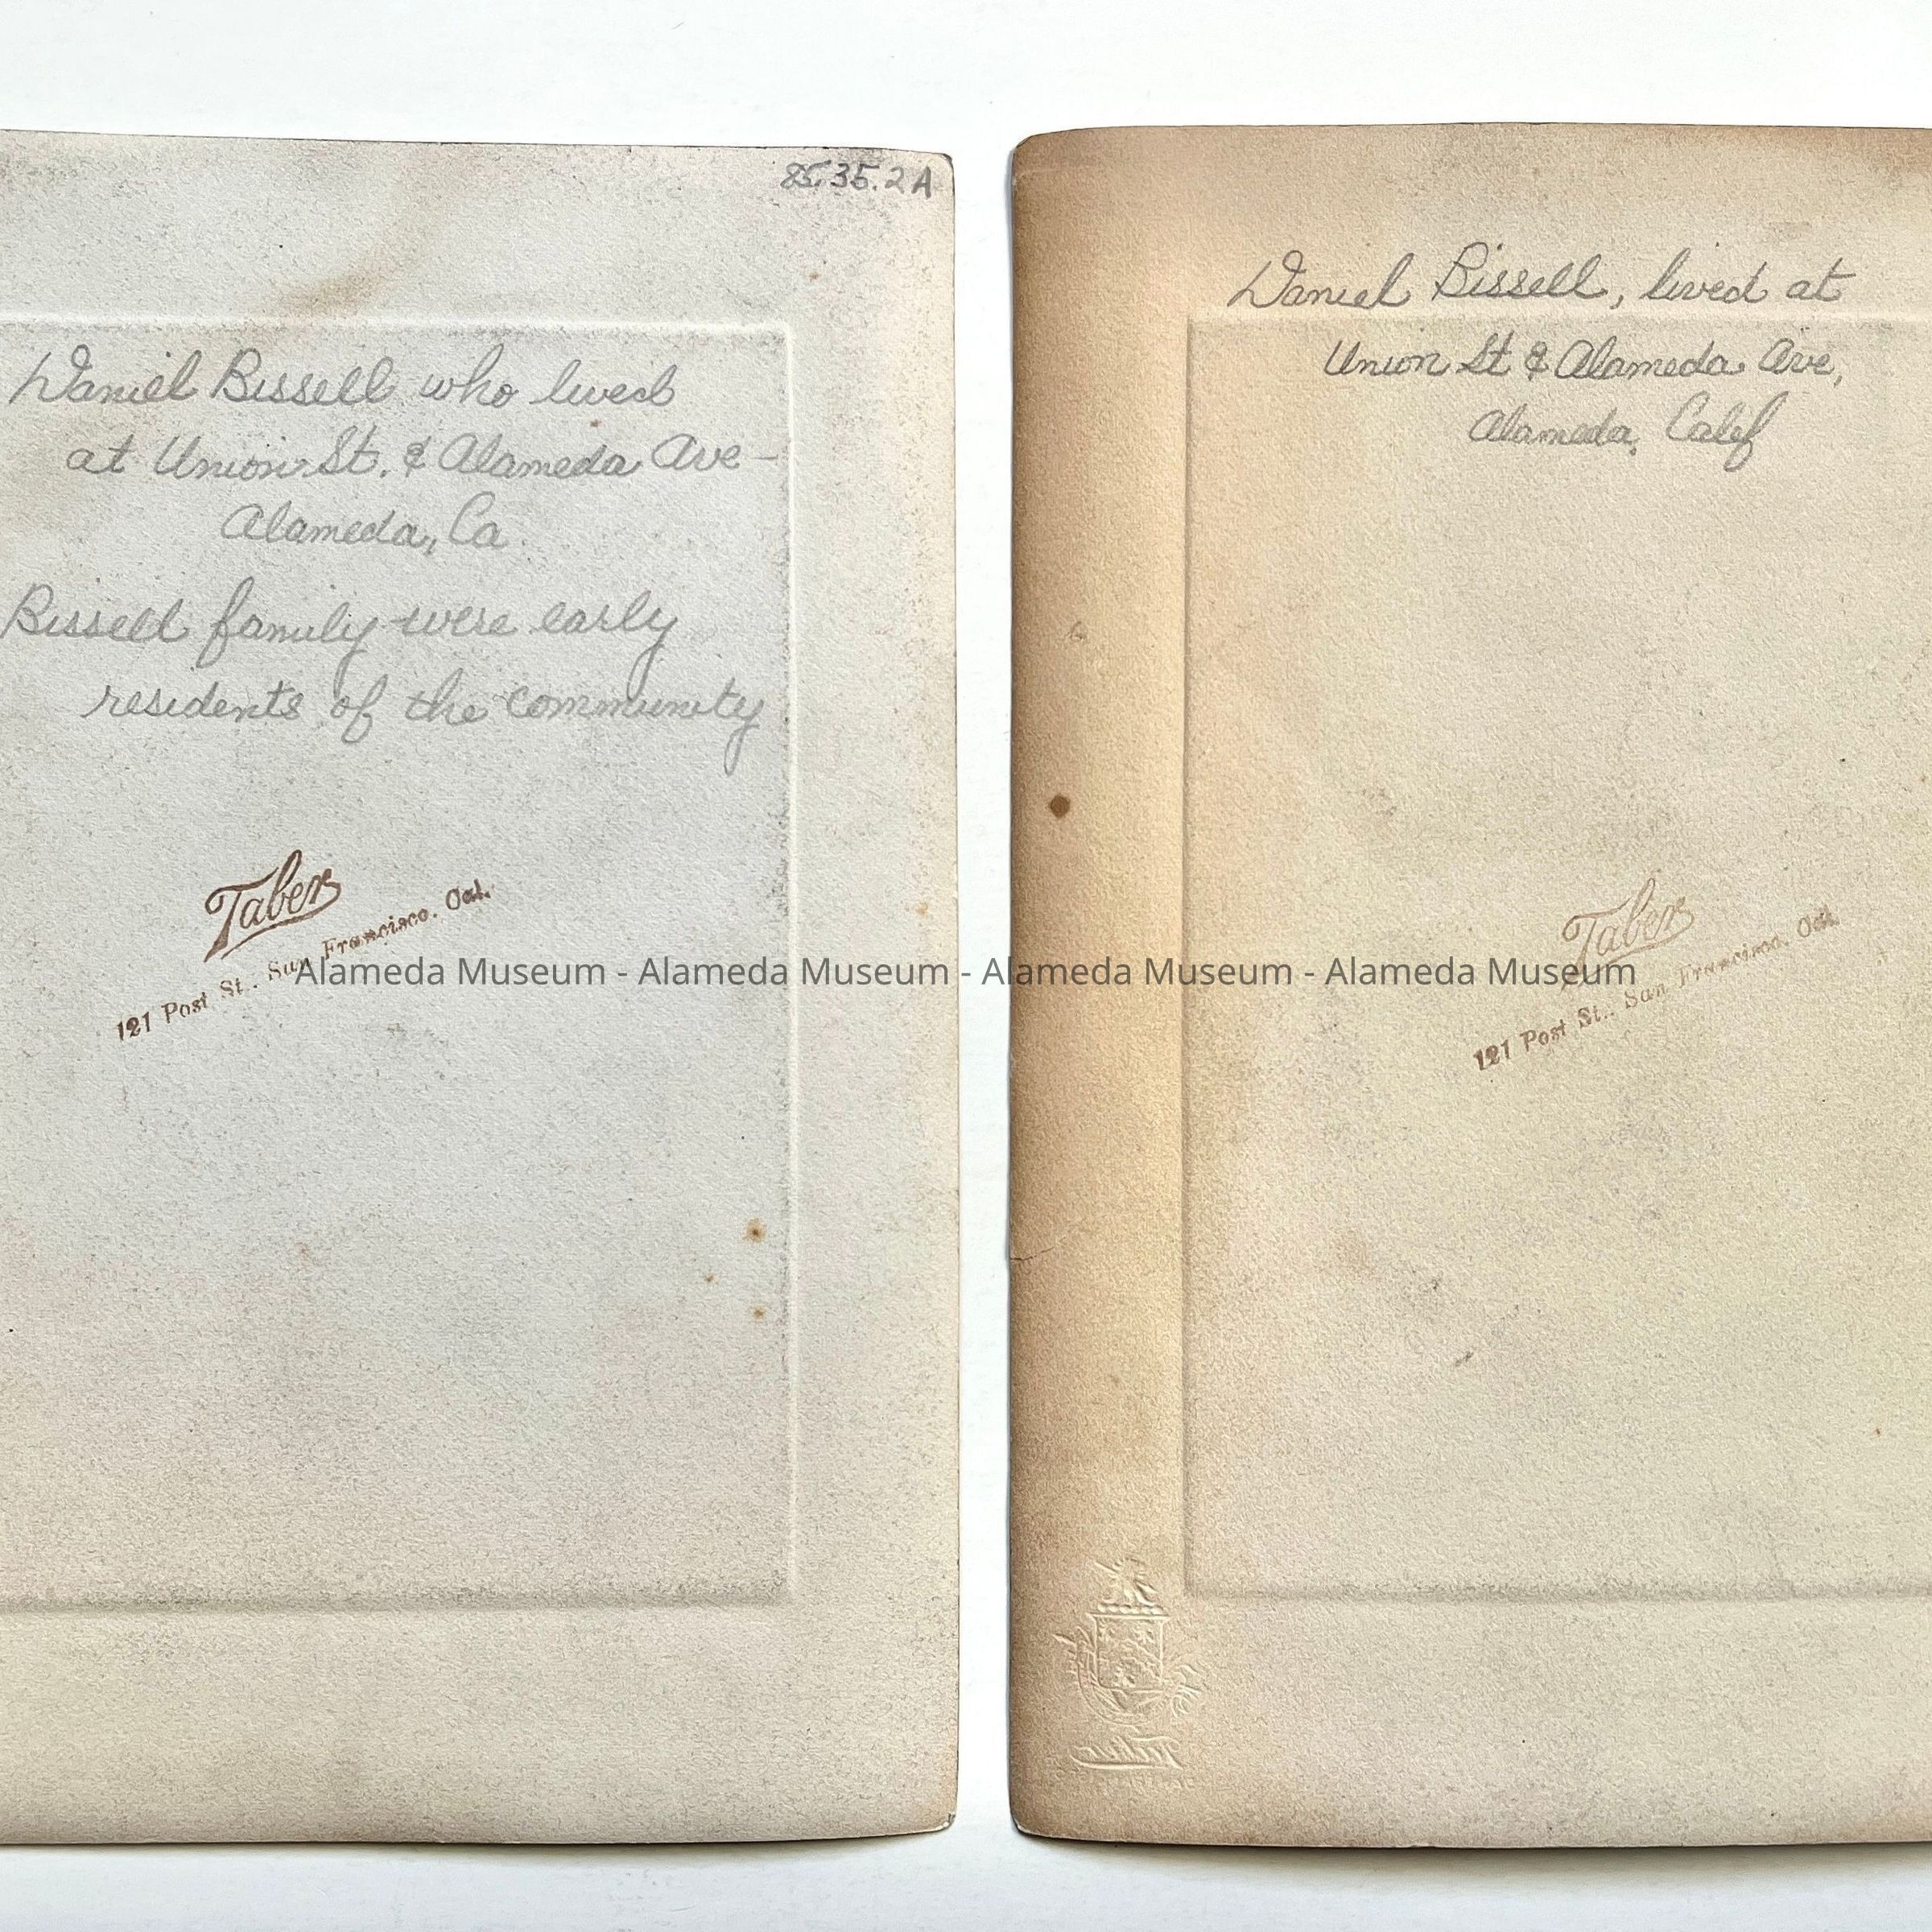 85.35.2A
Daniel Bissell who lived
at Union St. & Alameda Ave -
Alameda, Ca.
Bissell family were early
residents of the community
Taber
121 Post St., San Francisco, Cal.
Daniel Bissell, lived at
Union St & Alameda Ave,
Alameda, Calif
Taber
121 Post St., San Francisco, Cal.
Alameda Museum - Alameda Museum - Alameda Museum - Alameda Museum